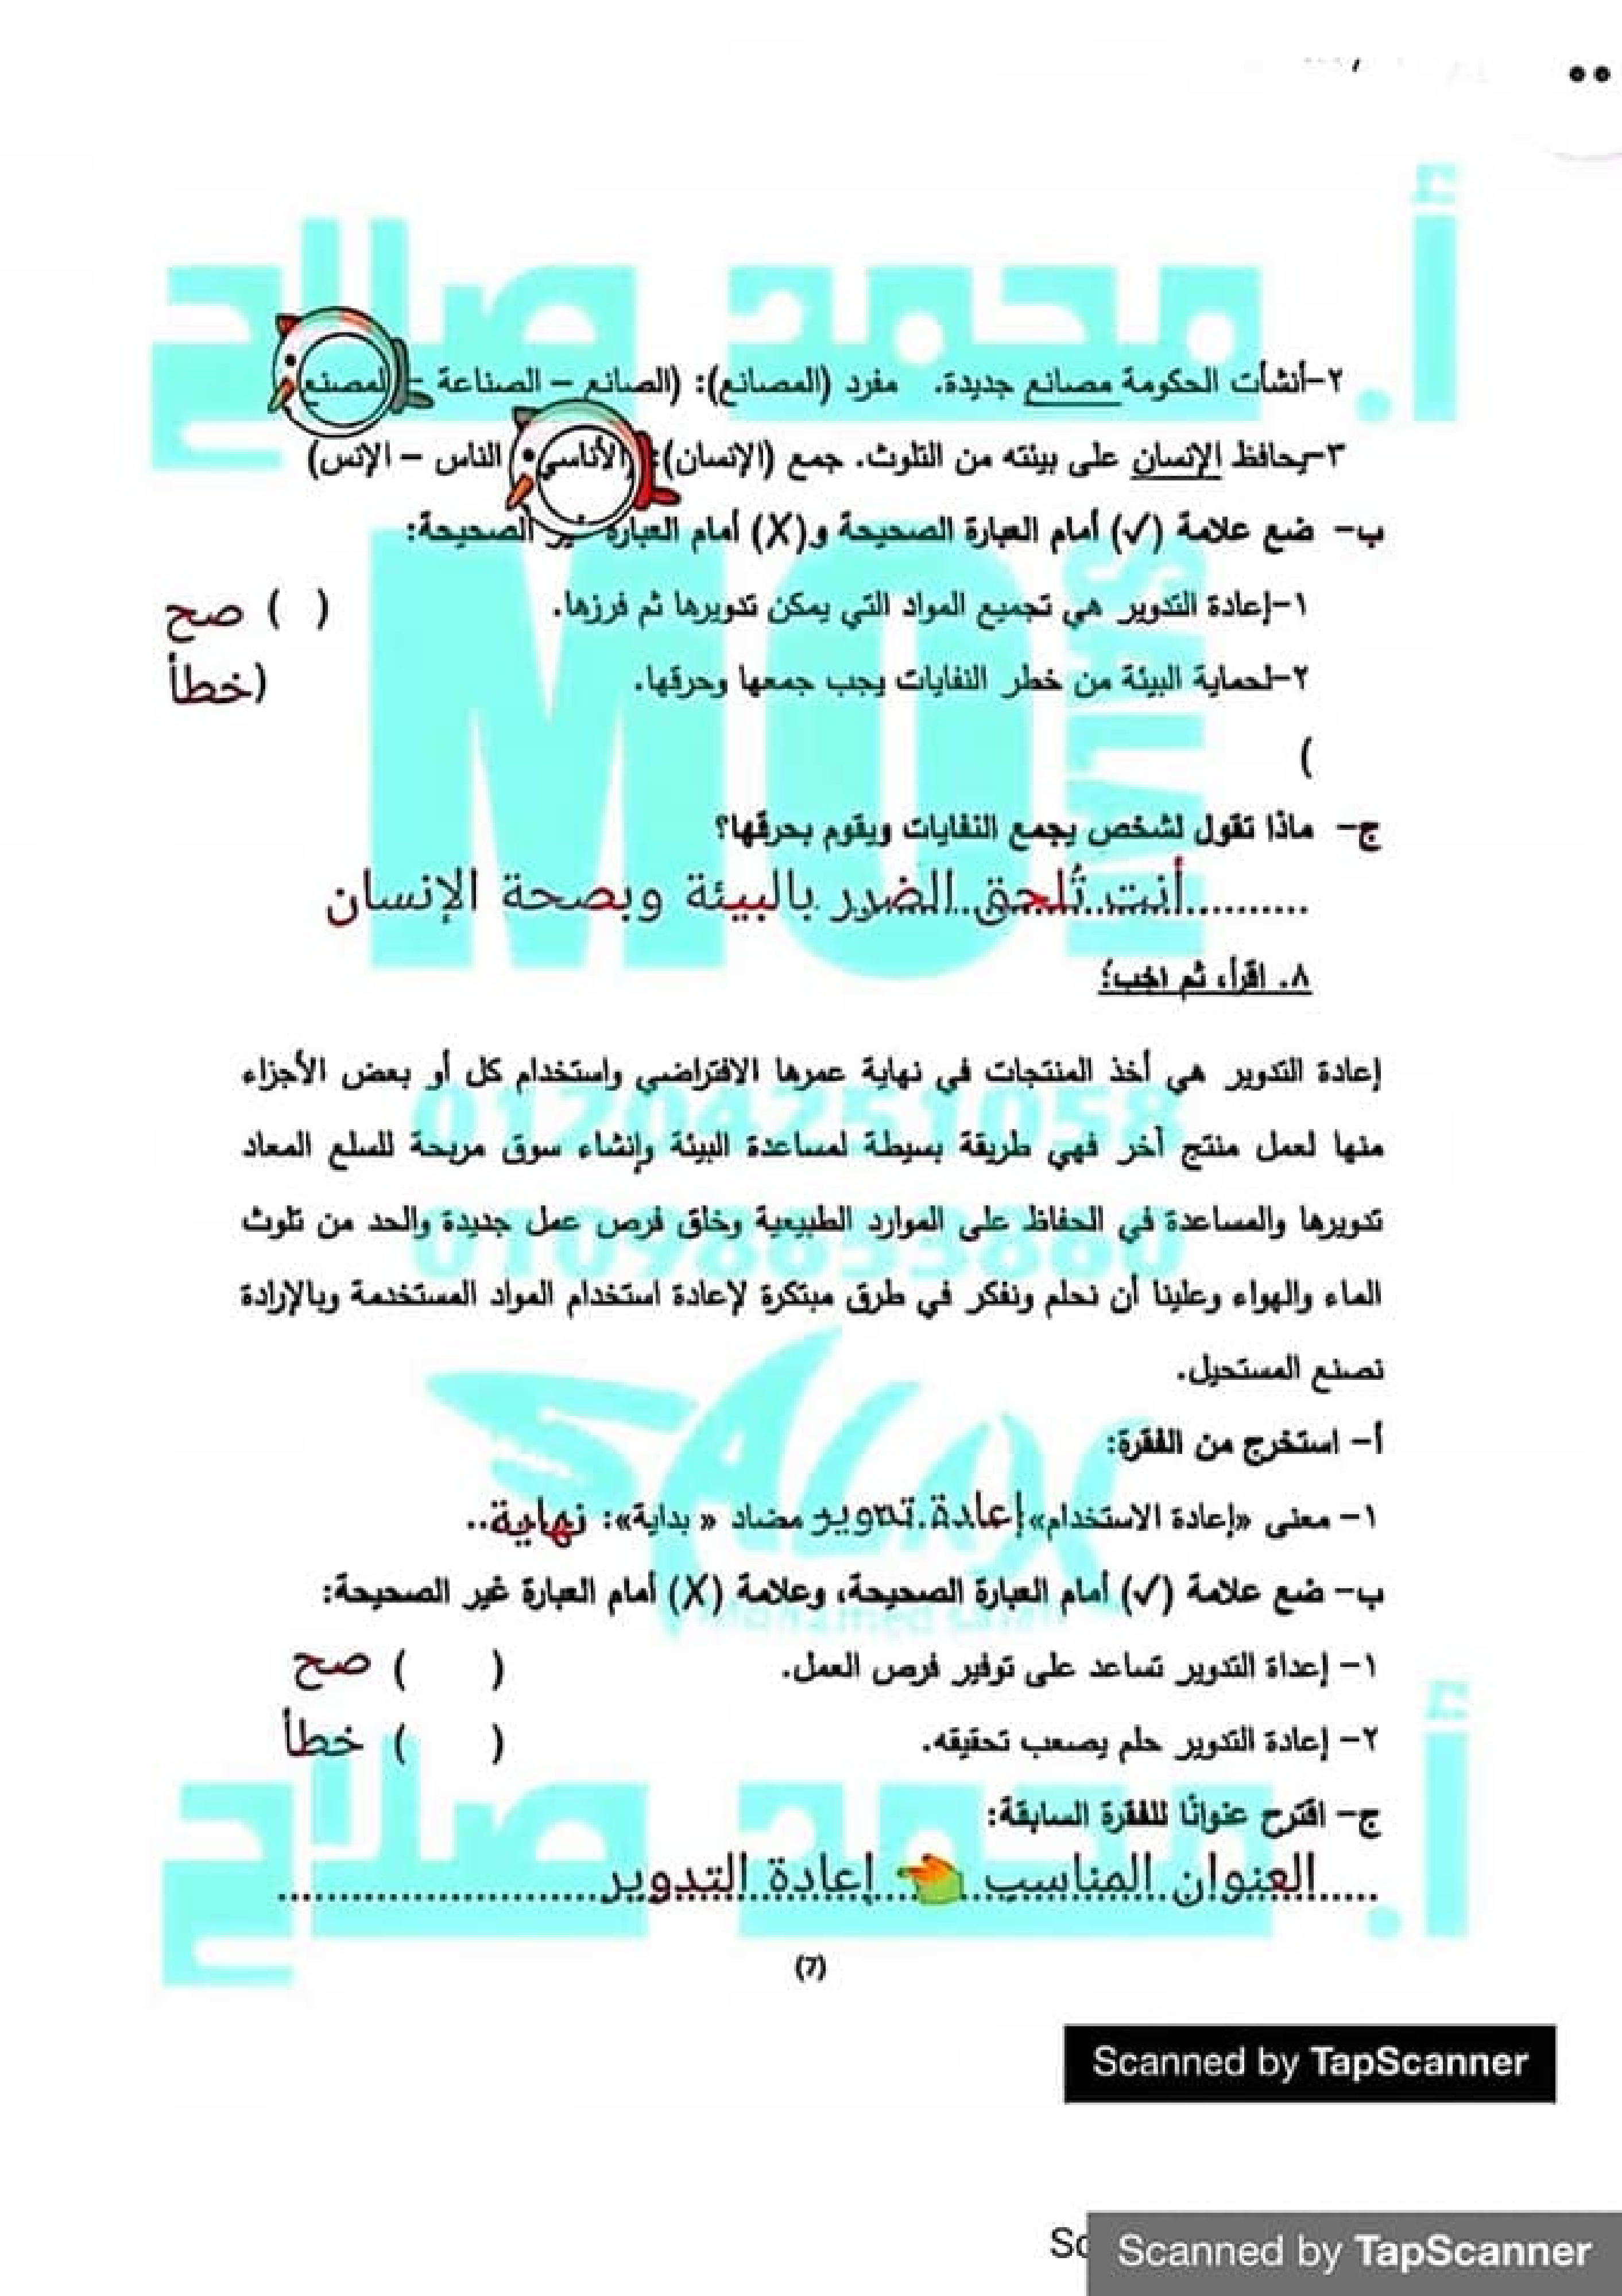 أ. محمد صلاح
٢-أنشأت الحكومة مصانع جديدة. مفرد (المصانع): (الصانع – الصناعة – المصنع
٣-يحافظ الإنسان على بيئته من التلوث. جمع (الإنسان): (الأناسي الناس – الإنس)
ب- ضع علامة (✓) أمام العبارة الصحيحة و(X) أمام العبارة الصحيحة:
١-إعادة التدوير هي تجميع المواد التي يمكن تدويرها ثم فرزها. ( ) صح
٢-لحماية البيئة من خطر النفايات يجب جمعها وحرقها. (خطأ
)
MO
SALAH
ج- ماذا تقول لشخص يجمع النفايات ويقوم بحرقها؟
..........أنت تُلحق الضرر بالبيئة وبصحة الإنسان
٨. اقرأ، ثم اجب:
إعادة التدوير هي أخذ المنتجات في نهاية عمرها الافتراضي واستخدام كل أو بعض الأجزاء
01204251058
منها لعمل منتج آخر فهي طريقة بسيطة لمساعدة البيئة وإنشاء سوق مربحة للسلع المعاد
تدويرها والمساعدة في الحفاظ على الموارد الطبيعية وخلق فرص عمل جديدة والحد من تلوث
الماء والهواء وعلينا أن نحلم ونفكر في طرق مبتكرة لإعادة استخدام المواد المستخدمة وبالإرادة
نصنع المستحيل.
SALAH
أ- استخرج من الفقرة:
١- معنى «إعادة الاستخدام»إعادة.تدوير مضاد « بداية»: نهاية..
ب- ضع علامة (✓) أمام العبارة الصحيحة، وعلامة (X) أمام العبارة غير الصحيحة:
Mohamed Salah
١- إعداة التدوير تساعد على توفير فرص العمل. ( ) صح
٢- إعادة التدوير حلم يصعب تحقيقه. ( ) خطأ
ج- اقترح عنوانًا للفقرة السابقة:
أ. محمد صلاح
.....العنوان المناسب إعادة التدوير..........................
(7)
Scanned by TapScanner
Sc
Scanned by TapScanner